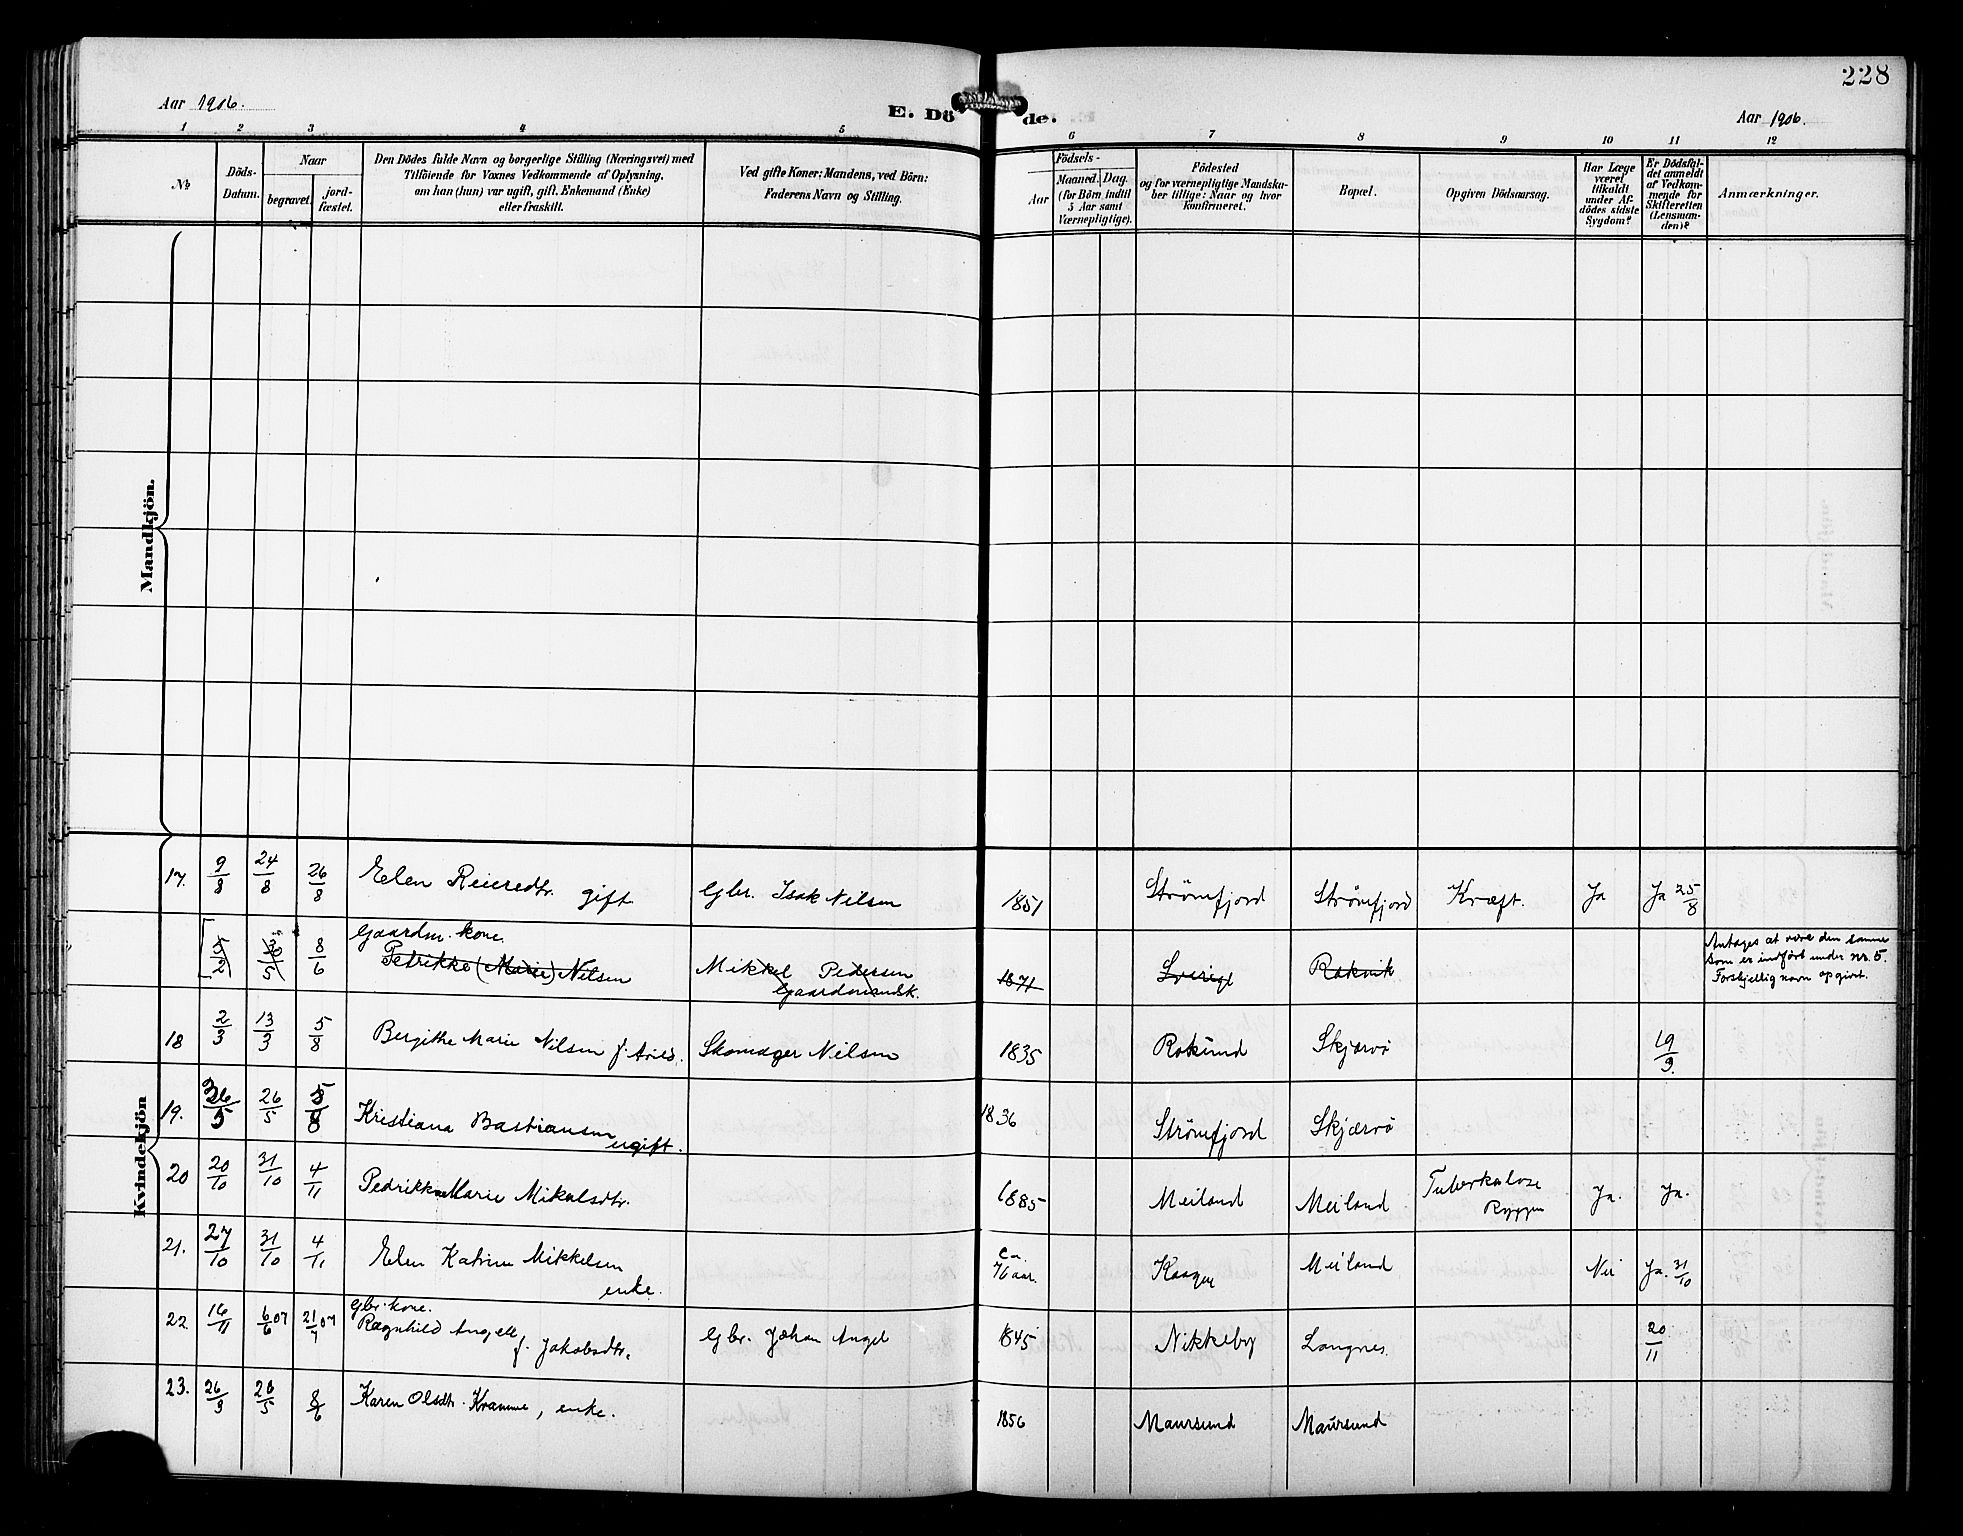 228
Aar 1906.
E. Dö
de.
Aar 1906.
1 2 3 4 5 6 7 8 9 10 11 12
№
Döds-
Datum.
Naar
begravet.
jord-
fæstet.
Den Dödes fulde Navn og borgerlige Stilling (Næringsvei) med
Tilföiende for Voxnes Vedkommende af Oplysning,
om han (hun) var ugift, gift, Enkemand (Enke)
eller fraskilt.
Ved gifte Koner: Mandens, ved Börn:
Faderens Navn og Stilling.
Födsels-
Aar
Maaned. Dag.
(for Börn indtil
5 Aar samt
Værnepligtige).
Födested
og for værnepligtige Mandska-
ber tillige: Naar og hvor
konfirmeret.
Bopæl.
Opgiven Dödsaarsag.
Har Læge
været
tilkaldt
under Af-
dödes sidste
Sygdom?
Er Dödsfal-
det anmeldt
af Vedkom-
mende for
Skifteretten
(Lensman-
den)?
Anmærkninger.
Mandkjön.
Kvindekjön
17. 9/8 24/8 26/8 Elen Reieredtr. gift Gbr. Isak Nilsen 1851 Strömfjord Strömfjord Kræft. Ja Ja 25/8
Gaardm. kone.
8/6 Petrikke (Marie) Nilsen Mikkel Pedersen 1871 Sverige Rakvik
Gaardmandsk.
Antages at være den samme
som er indfört under nr. 5.
Forskjellig navn opgivet.
18 2/3 13/3 5/8 Bergithe Marie Nilsen f. Skomager Nilsen 1835 Rotsund Skjærvö 19/3
19. 26/5 26/5 5/8 Kristiana Bastiansen 1836 Strömfjord Skjærvö
ugift.
20 20/10 31/10 4/11 Pedrikke Marie Mikalsdtr. 1885 Meiland Meiland Tuberkulose Ja. Ja.
Ryggen
21. 27/10 31/10 4/11 Elen Katrine Mikkelsen ca. 76 aar. Kaagen Meiland Nei Ja. 31/10
enke.
Gbr. kone.
22. 16/11 6/6 07 21/7 07 Ragnhild Angell Gbr. Johan Angel 1845 Nikkeby Langnes. 20/11
f. Jakobsdtr.
23. 26/3 28/5 8/6 Karen Olsdtr. Kramme, enke. 1856 Maursund Maursund